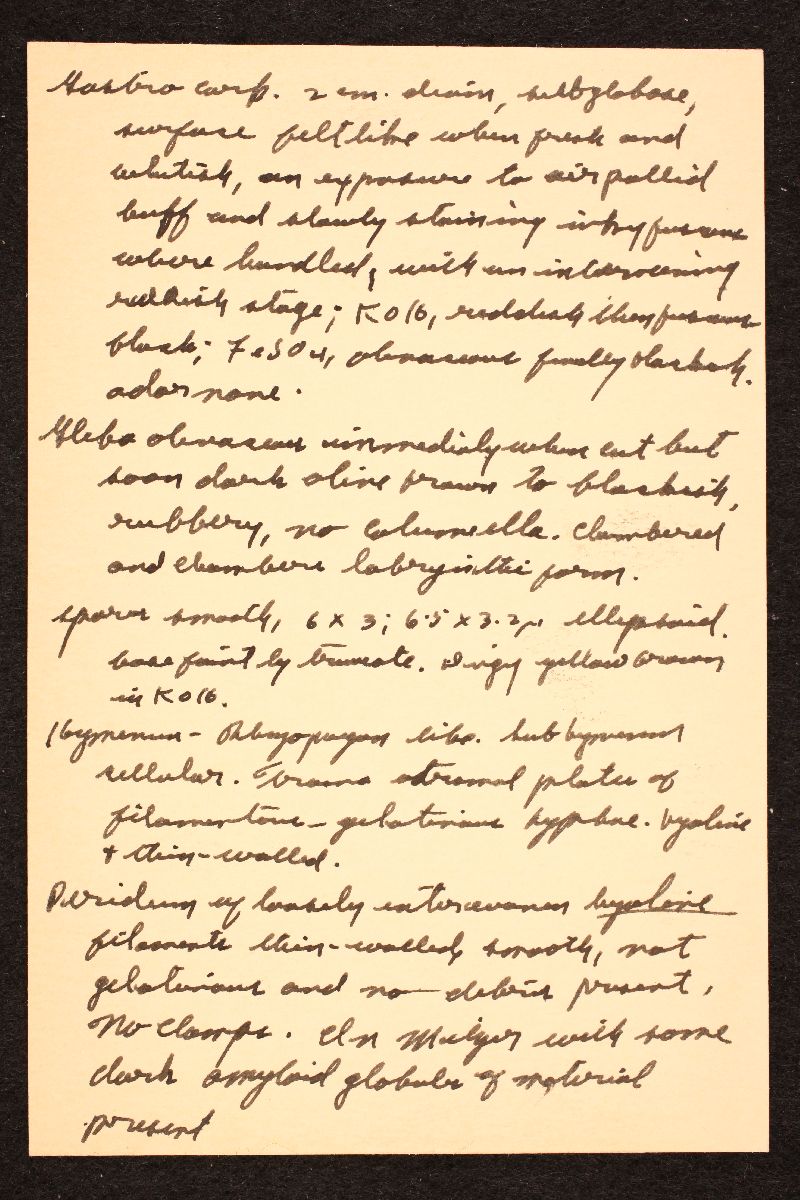 Gastro carp. 2 cm. diam, subglobose,
surface felt like when fresh and
whitish, on exposure to air pallid
buff and slowly staining inky fuscous
where handled, with an intervening
reddish stage; KOH, reddish then fuscous
black; FeSO4, olivaceous finally blackish.
odor none.
Gleba olivaceous immedialy when cut but
soon dark olive brown to blackish,
rubbery, no columella. Chambered
and chambers labryinthi form.
spores smooth, 6 x 3; 6.5 x 3.2µ ellipsoid.
base faintly truncate. dingy yellow brown
in KOH.
Hymenium - Rhizopogon like. Subhymenium
cellular. Trama of tramal plates of
filamentous - gelatinous hyphae. hyaline
+ thin-walled.
Peridium of loosely interwoven hyaline
filaments thin-walled, smooth, not
gelatinous and no debris present,
No clamps. In Melzer with some
dark amyloid globules of material
present